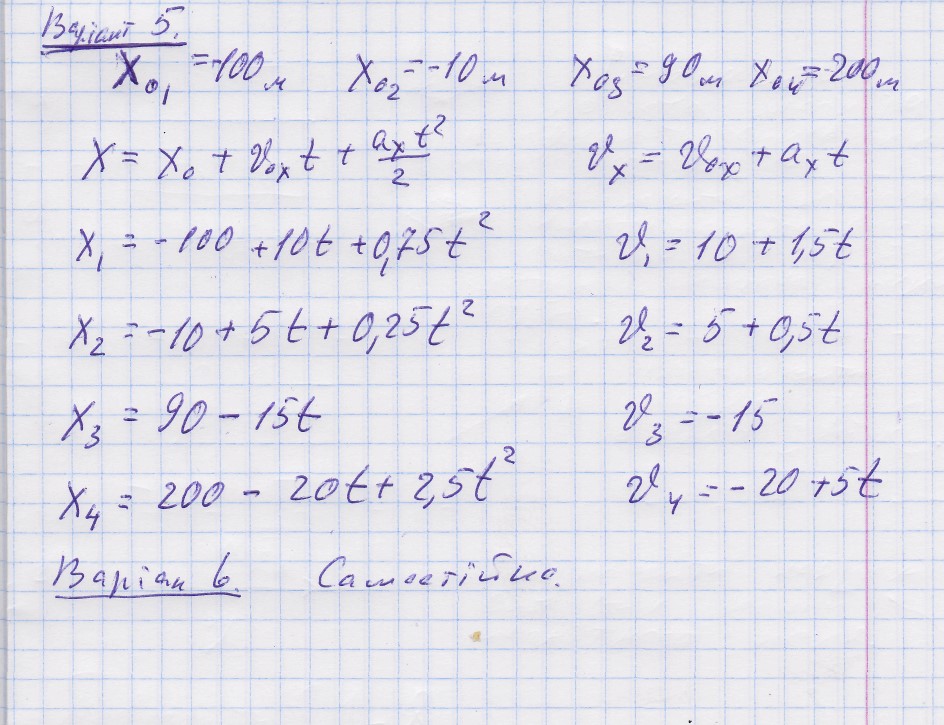 Варіант 5.
X₀₁ = -100 м X₀₂ = -10 м X₀₃ = 90 м X₀₄ = 200 м
X = X₀ + v₀ₓt + aₓt²/2 vₓ = v₀ₓ + aₓt
X₁ = -100 + 10t + 0,75t² v₁ = 10 + 1,5t
X₂ = -10 + 5t + 0,25t² v₂ = 5 + 0,5t
X₃ = 90 - 15t v₃ = -15
X₄ = 200 - 20t + 2,5t² v₄ = -20 + 5t
Варіан 6. Самостійно.